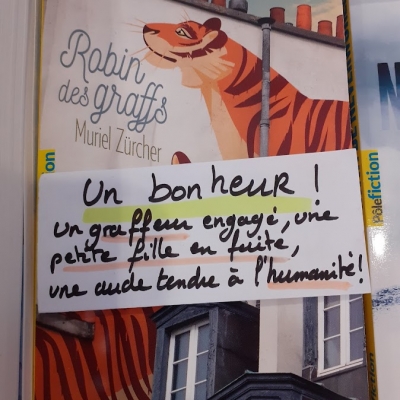 Robin
des graffs
Muriel Zürcher
Un bonheur !
un graffeur engagé, une
petite fille en fuite,
une aude tendre à l'humanité !
Pôlefiction
fiction
N